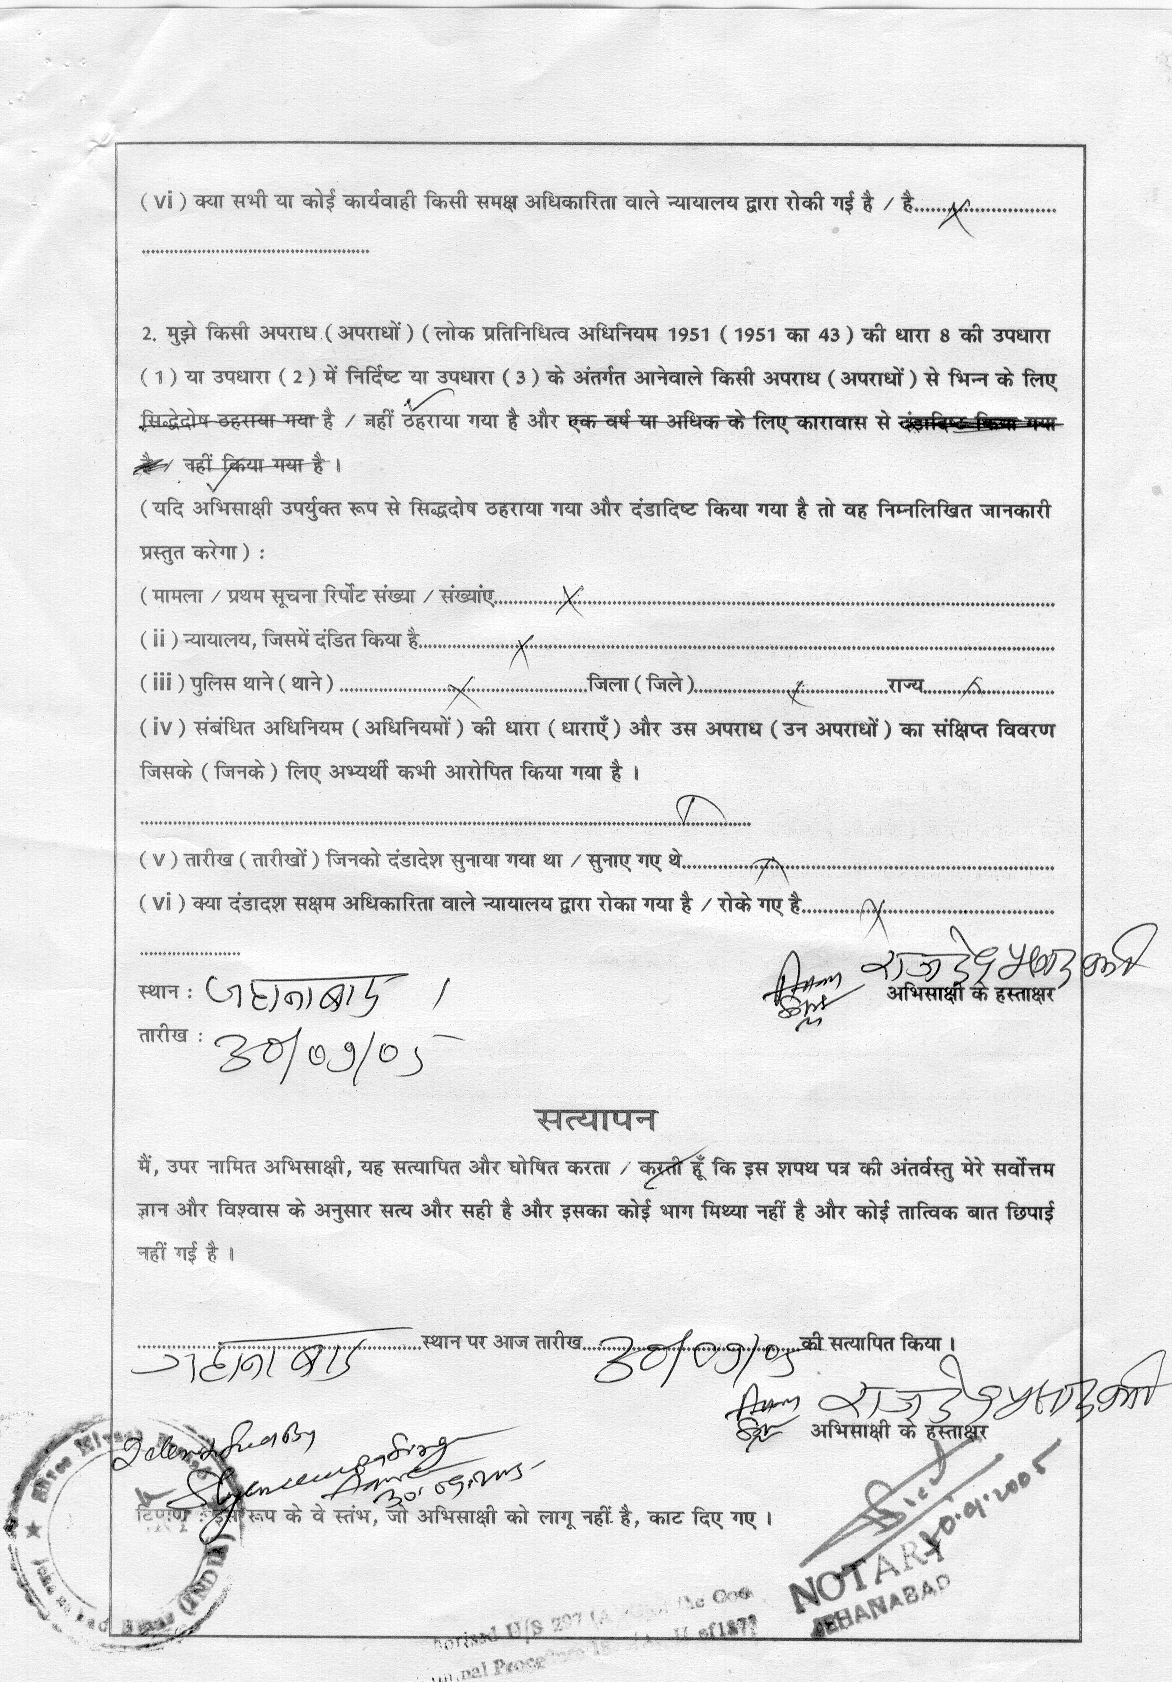 (vi) क्या सभी या कोई कार्यवाही किसी समक्ष अधिकारिता वाले न्यायालय द्वारा रोकी गई है / है.......X.......
2. मुझे किसी अपराध (अपराधों) (लोक प्रतिनिधित्व अधिनियम 1951 (1951 का 43) की धारा 8 की उपधारा
(1) या उपधारा (2) में निर्दिष्ट या उपधारा (3) के अंतर्गत आनेवाले किसी अपराध (अपराधों) से भिन्न के लिए
सिद्धेदोष ठहराया गया है / नहीं ठहराया गया है और एक वर्ष या अधिक के लिए कारावास से दंडादिष्ट किया गया
है / नहीं किया गया है ।
(यदि अभिसाक्षी उपर्युक्त रूप से सिद्धदोष ठहराया गया और दंडादिष्ट किया गया है तो वह निम्नलिखित जानकारी
प्रस्तुत करेगा) :
(मामला / प्रथम सूचना रिर्पोट संख्या / संख्यांए.......X.......
(ii) न्यायालय, जिसमें दंडित किया है.......X.......
(iii) पुलिस थाने (थाने) .......X.......जिला (जिले).......X.......राज्य.......
(iv) संबंधित अधिनियम (अधिनियमों) की धारा (धाराएँ) और उस अपराध (उन अपराधों) का संक्षिप्त विवरण
जिसके (जिनके) लिए अभ्यर्थी कभी आरोपित किया गया है ।
(v) तारीख (तारीखों) जिनको दंडादेश सुनाया गया था / सुनाए गए थे.......
(vi) क्या दंडादश सक्षम अधिकारिता वाले न्यायालय द्वारा रोका गया है / रोके गए है.......X.......
स्थान : जहानाबाद ।
अभिसाक्षी के हस्ताक्षर
तारीख : 30/09/05
सत्यापन
मैं, उपर नामित अभिसाक्षी, यह सत्यापित और घोषित करता / करती हूँ कि इस शपथ पत्र की अंतर्वस्तु मेरे सर्वोत्तम
ज्ञान और विश्वास के अनुसार सत्य और सही है और इसका कोई भाग मिथ्या नहीं है और कोई तात्विक बात छिपाई
नहीं गई है ।
जहानाबाद स्थान पर आज तारीख 30/09/05 की सत्यापित किया ।
अभिसाक्षी के हस्ताक्षर
टिप्पण : इस रूप के वे स्तंभ, जो अभिसाक्षी को लागू नहीं है, काट दिए गए ।
30.9.2005
NOTARY
JEHANABAD
(INDIA)
U/S 297